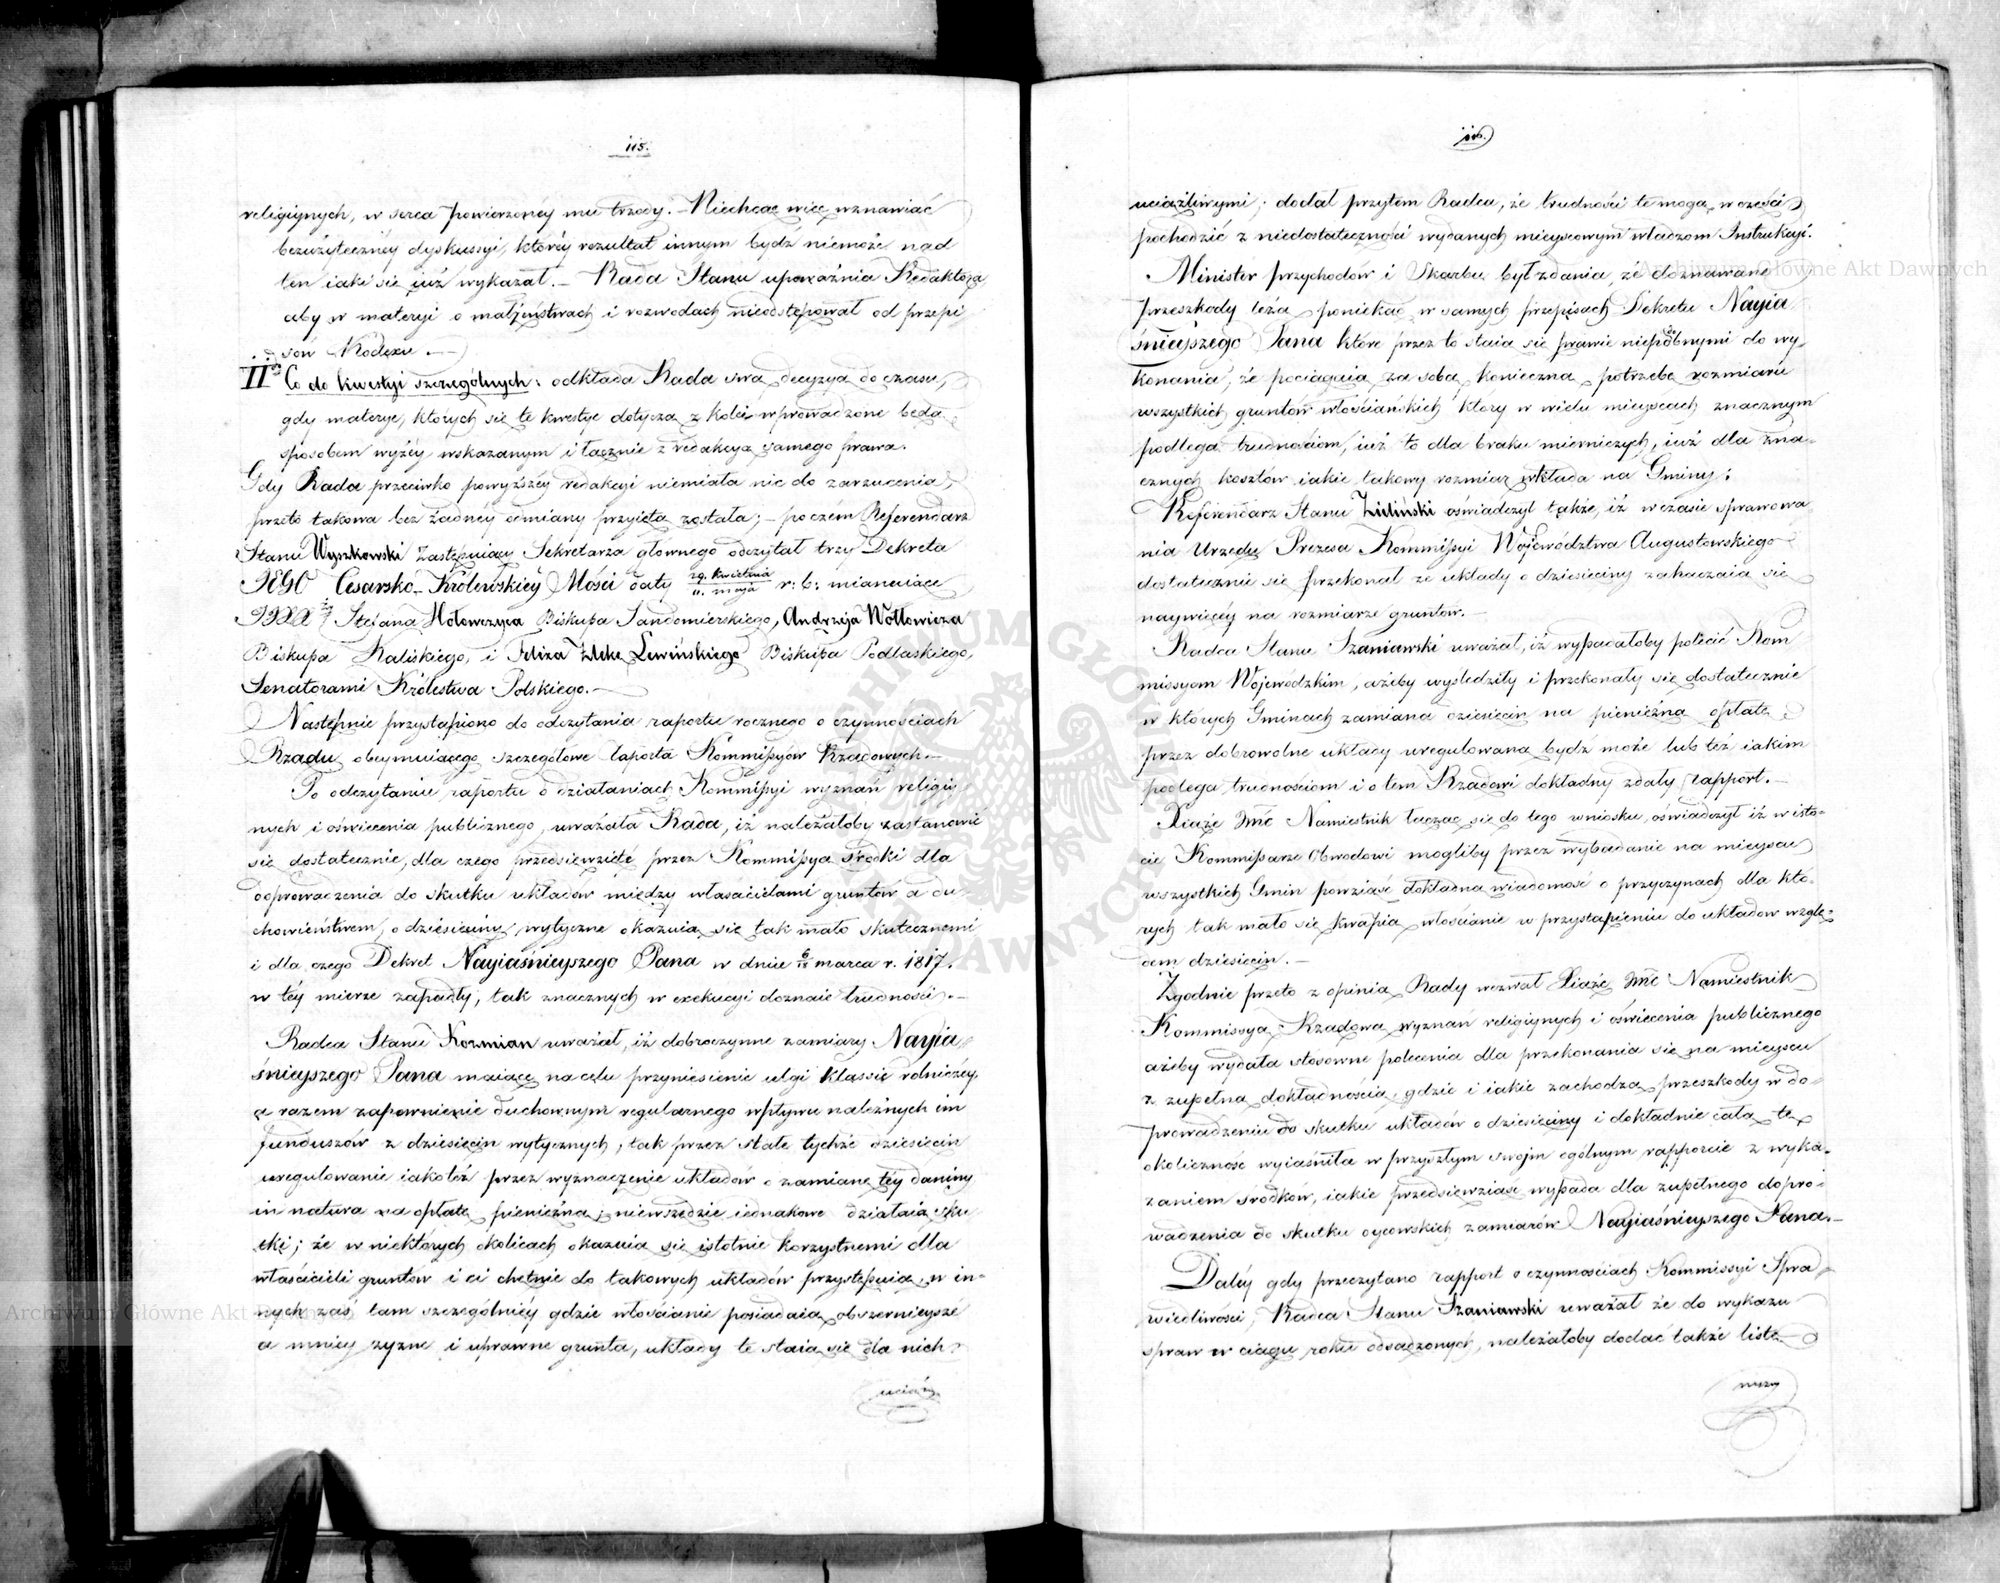 115.
religiynych, w serca powierzoney mu trzody. – Niechcąc więc wznawiać
bezużyteczney dyskussyi, którey rezultat innym bydź niemoże nad
ten iaki się iuż wykazał. – Rada Stanu upoważnia Redaktora
aby w materyi o małżeństwach i rozwodach nieodstępował od przepi
sów Kodexu. –
IIº Co do kwestyi szczególnych: odkłada Rada swą decyzyą do czasu,
gdy materye, których się te kwestye dotyczą z kolei wprowadzone będą
sposobem wyżey wskazanym i łącznie z redakcyą samego prawa.
Gdy Rada przeciwko powyższey redakcyi niemiała nic do zarzucenia,
przeto takowa bez żadney odmiany przyięta została; – poczém Referendarz
Stanu Wyszkowski Zastępuiący Sekretarza głównego odczytał trzy Dekreta
JEGO Cesarsko-Królewskiey Mości daty 29. kwietnia / 11. maja r: b: mianuiące
JJXX Stefana Hołowczyca Biskupa Sandomierskiego, Andrzeja Wołłowicza
Biskupa Kaliskiego, i Felixa Łukę Lewińskiego Biskupa Podlaskiego,
Senatorami Królestwa Polskiego. –
Następnie przystąpiono do odczytania raportu rocznego o czynnościach
Rządu obeymuiącego szczegółowe raporta Kommissyów Rządowych. –
Po odczytaniu raportu o działaniach Kommissyi wyznań religiy
nych i oświecenia publicznego, uważała Rada, iż należałoby zastanowić
się dostatecznie, dla czego przedsięwzięte przez Kommissyą środki dla
doprowadzenia do skutku układów między właścicielami gruntów a du
chowieństwem, o dziesięciny wytyczne okazuią się tak mało skutecznemi
i dla czego Dekret Nayiaśnieyszego Pana w dniu 6/18 marca r. 1817.
w téy mierze zapadły, tak znacznych w exekucyi doznaie trudności. –
Radca Stanu Kozmian uważał, iż dobroczynne zamiary Nayia
śnieyszego Pana maiące na celu przyniesienie ulgi klassie rolniczéy,
a razem zapewnienie duchownym regularnego wpływu należnych im
funduszów z dziesięcin wytycznych, tak przez stałe tychże dziesięcin
uregulowanie iakoteż przez wyznaczenie układów o zamianę téy daniny
in natura na opłatę pieniężną; niewszędzie iednakowe działaią sku
tki; że w niektórych okolicach okazuią się istotnie korzystnemi dla
właścicieli gruntów i ci chętnie do takowych układów przystępuią, w in-
nych zaś tam szczególniéy gdzie włościanie posiadaią obszernieysze
a mniéy żyzne i uprawne grunta, układy te staią się dla nich
uciąż
116.
uciążliwymi; dodał przytém Radca, że trudności te mogą w części
pochodzić z niedostateczności wydanych mieyscowym władzom Instrukcyi.
Minister przychodów i Skarbu był zdania, że doznawane
przeszkody leżą poniekąd w samych przepisach Dekretu Nayia
śnieyszego Pana które przez to staią się prawie niepodobnymi do wy-
konania, że pociągaią za sobą konieczną potrzebę rozmiaru
wszystkich gruntów włościańskich który w wielu mieyscach znacznym
podlega trudnościom, iuż to dla braku mierniczych, iuż dla zna-
cznych kosztów iakie takowy rozmiar wkłada na Gminy;
Referendarz Stanu Zieliński oświadczył także, iż w czasie sprawowa
nia Urzędu Prezesa Kommissyi Województwa Augustowskiego
dostatecznie się przekonał że układy o dziesięciny zahaczaią się
naywięcéy na rozmiarze gruntów. –
Radca Stanu Szaniawski uważał, iż wypadałoby polecić Kom
missyom Wojewódzkim, ażeby wyśledziły i przekonały się dostatecznie
w których Gminach zamiana dziesięcin na pieniężną opłatę
przez dobrowolne układy uregulowaną bydź może lub téż iakim
podlega trudnościom i o tem Rządowi dokładny zdały rapport. –
Xiąże Jmć Namiestnik łącząc się do tego wniosku, oświadczył iż w isto-
cie Kommissarze Obwodowi mogliby przez wybadanie na mieyscu
wszystkich Gmin powziąść dokładną wiadomość o przyczynach dla któ-
rych tak mało się kwapią włościanie w przystąpieniu do układow wzglę-
dem dziesięcin. –
Zgodnie przeto z opinią Rady wezwał Xiąże Jmć Namiestnik
Kommissyą Rządową wyznań religiynych i oświecenia publicznego
ażeby wydała stosowne polecenia dla przekonania się na mieyscu
z zupełną dokładnością, gdzie i iakie zachodzą przeszkody w do-
prowadzeniu do skutku układów o dziesięciny i dokładnie całą tę
okoliczność wyiaśniła w przyszłym swojm ogólnym rapporcie z wyka-
zaniem środków, iakie przedsięwziąść wypada dla zupełnego dopro-
wadzenia do skutku oycowskich zamiarów Nayiaśnieyszego Pana. –
Daléy gdy przeczytano rapport o czynnościach Kommissyi Spra
wiedliwości, Radca Stanu Szaniawski uważał że do wykazu
spraw w ciągu roku osądzonych, należałoby dodać także listę
Archiwum Główne Akt Dawnych
Archiwum Główne Akt Dawnych
ARCHIWUM GŁÓWNE AKT DAWNYCH